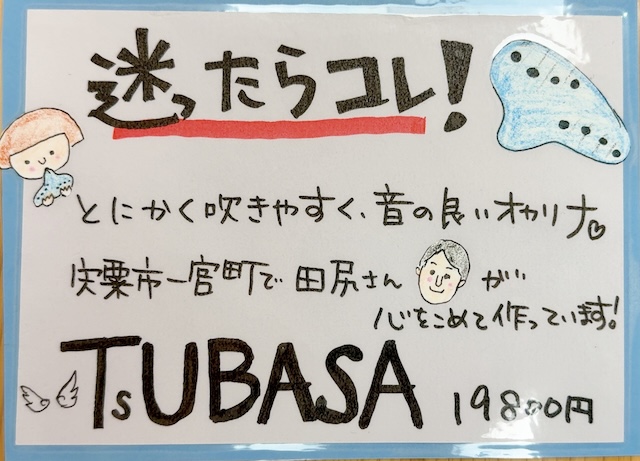 迷ったらコレ!
とにかく吹きやすく、音の良いオカリナ♡
宍粟市一宮町で田尻さんが
心をこめて作っています!
TsUBASA 19800円